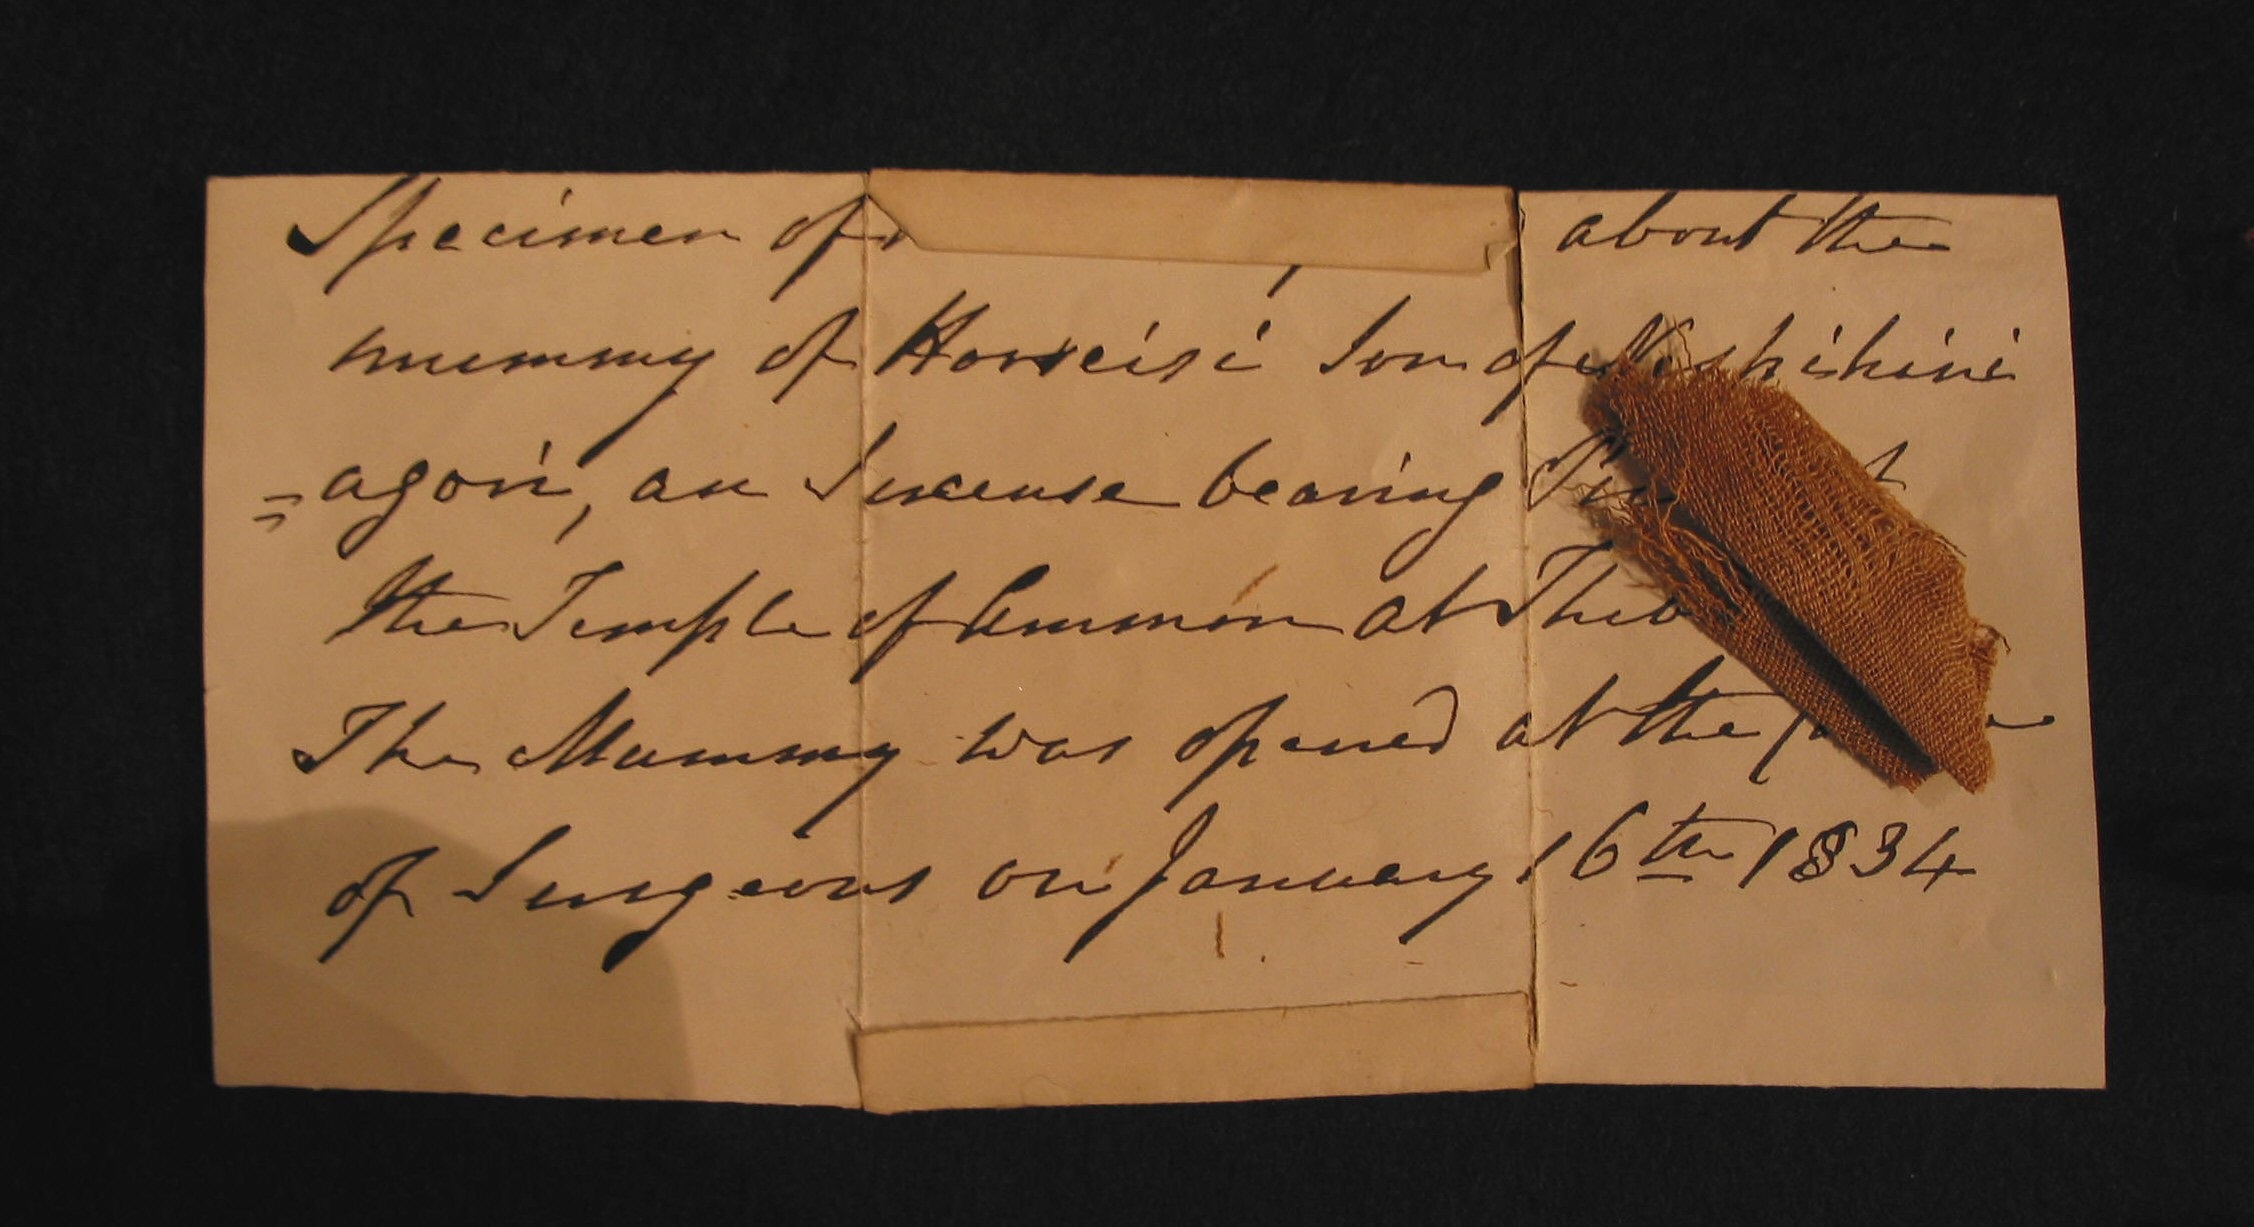 Specimen of about the
mummy of Horseisi Son of Naspihini
=agori, an Incense bearing
the Temple of Ammon at Theb
The Mummy was opened at the
of Surgeons on January 16th 1834